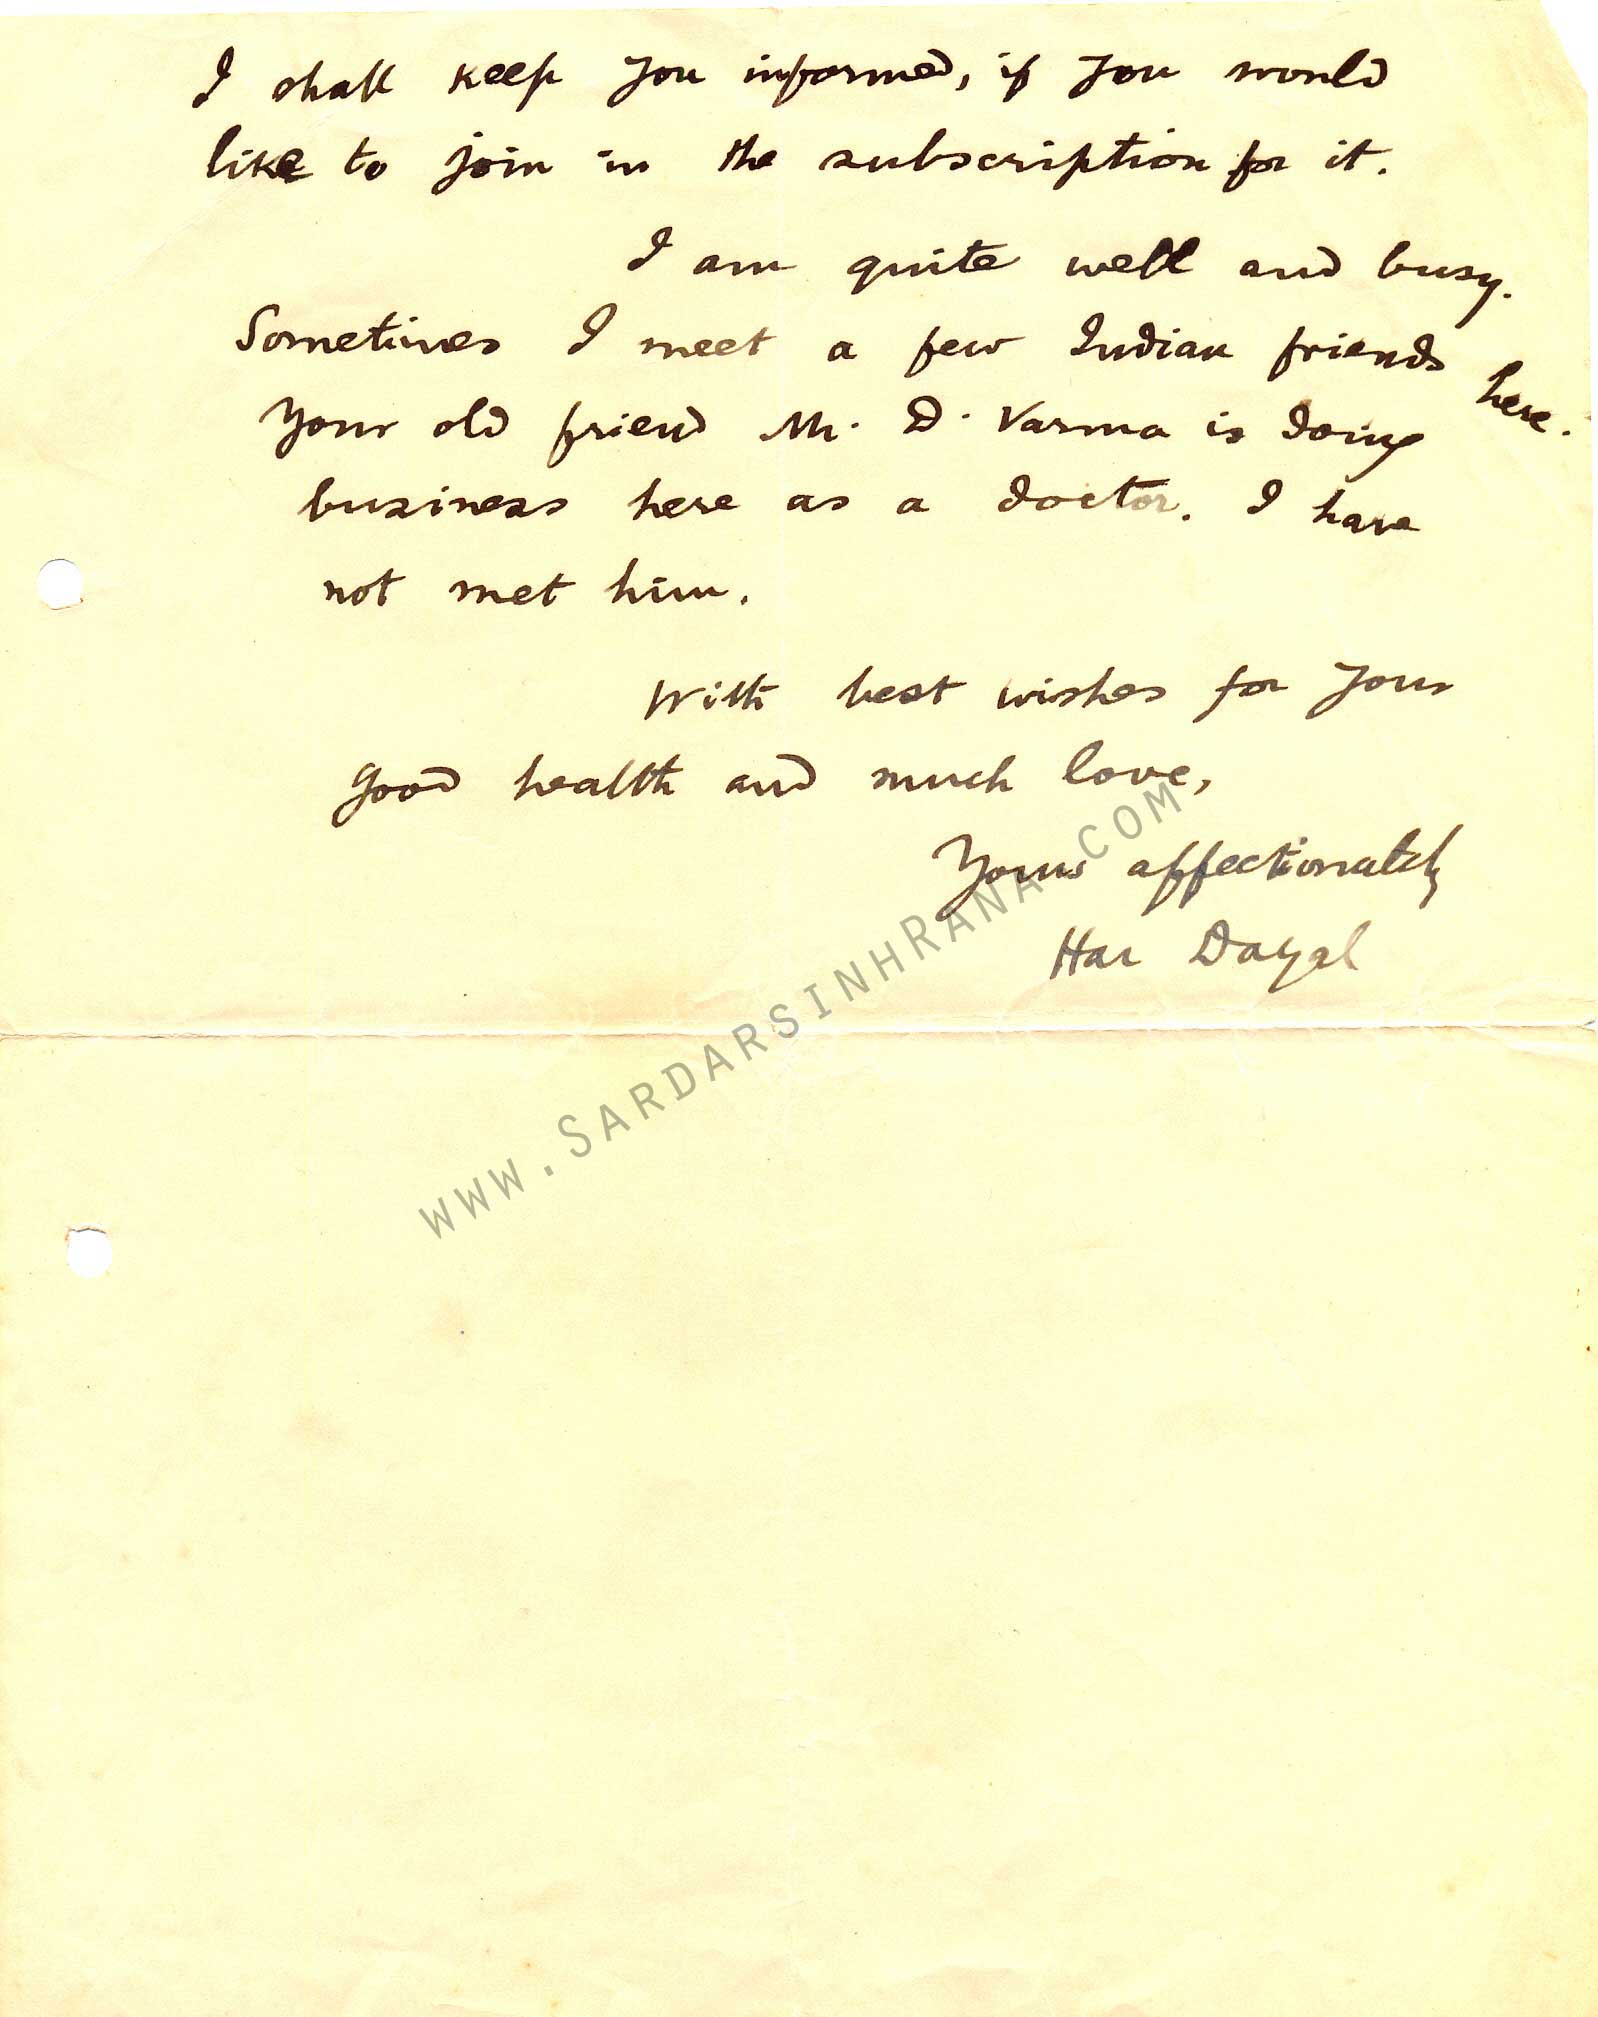 I shall keep you informed, if you would
like to join in the subscription for it.
I am quite well and busy.
Sometimes I meet a few Indian friends here.
Your old friend Mr. D. Varma is doing
business here as a doctor. I have
not met him.
With best wishes for your
good health and much love,
Yours affectionately
Har Dayal
www.SardarsinhRana.com